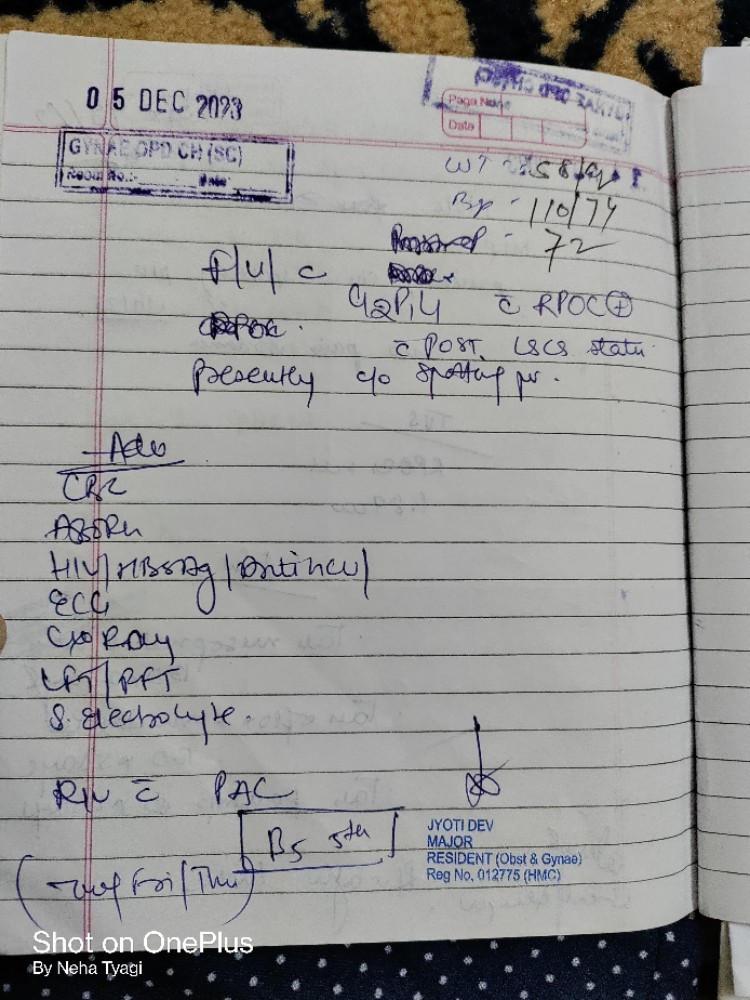 05 DEC 2023
GYNAE OPD CH (SC)
Room No.:- Date:-
Page No.
Date
WT - 58
Bp - 110/74
72
F/U/ c̄
G2P1L1 c̄ RPOC ⊕
c̄ POST LSCS status
Presently c/o spotting pv.
Adv
CBC
ABORh
HIV/HBsAg/AntiHCV/
ECG
CxR Ray
LFT/RFT
S. Electrolyte.
R/v c̄ PAC
B5 5th
Fri/Thu)
JYOTI DEV
MAJOR
RESIDENT (Obst & Gynae)
Reg No. 012775 (HMC)
Shot on OnePlus
By Neha Tyagi